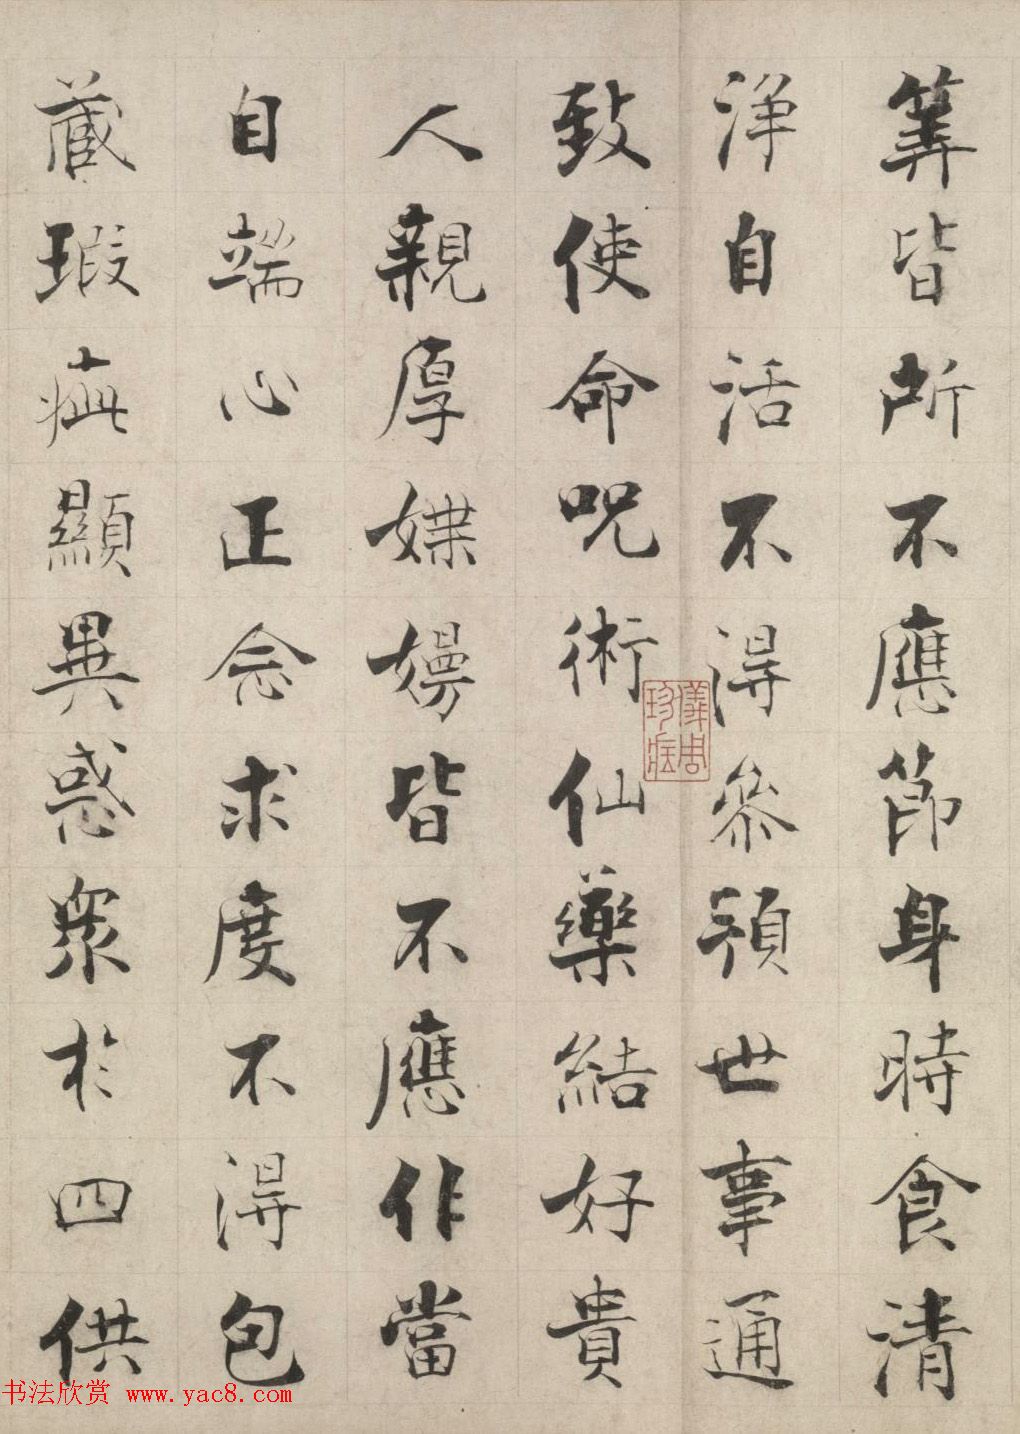 筭皆所不應節身時食清
淨自活不得參預世事通
致使命呪術仙藥結好貴
人親厚媟嫚皆不應作當
自端心正念求度不得包
藏瑕疵顯異惑衆於四供
書法欣賞 www.yac8.com